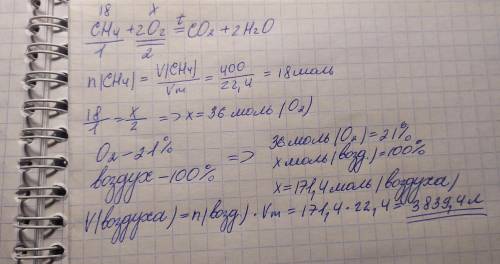 18 x
CH₄ + 2O₂ =ᵗ CO₂ + 2H₂O
1 2
n(CH₄) = V(CH₄)/Vm = 400/22,4 = 18 моль
18/1 = x/2 => x = 36 моль (O₂)
O₂ - 21% => 36 моль (O₂) = 21%
воздух - 100% x моль (возд.) = 100%
x = 171,4 моль (воздуха)
V(воздуха) = n(возд.) · Vm = 171,4 · 22,4 = 3839,4 л